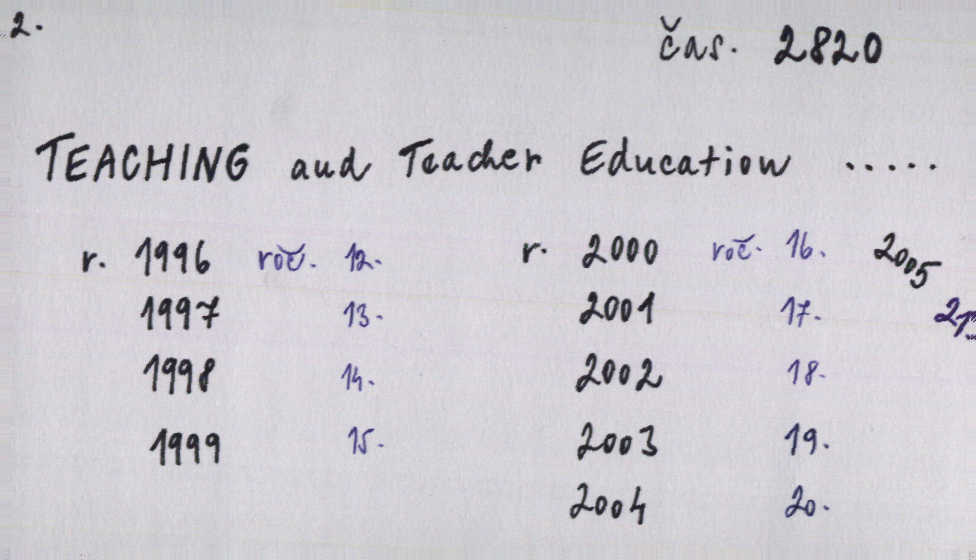 2.
čas. 2820
TEACHING and Teacher Education .....
r. 1996 roč. 12. r. 2000 roč. 16. 2005
1997 13. 2001 17. 21
1998 14. 2002 18.
1999 15. 2003 19.
2004 20.